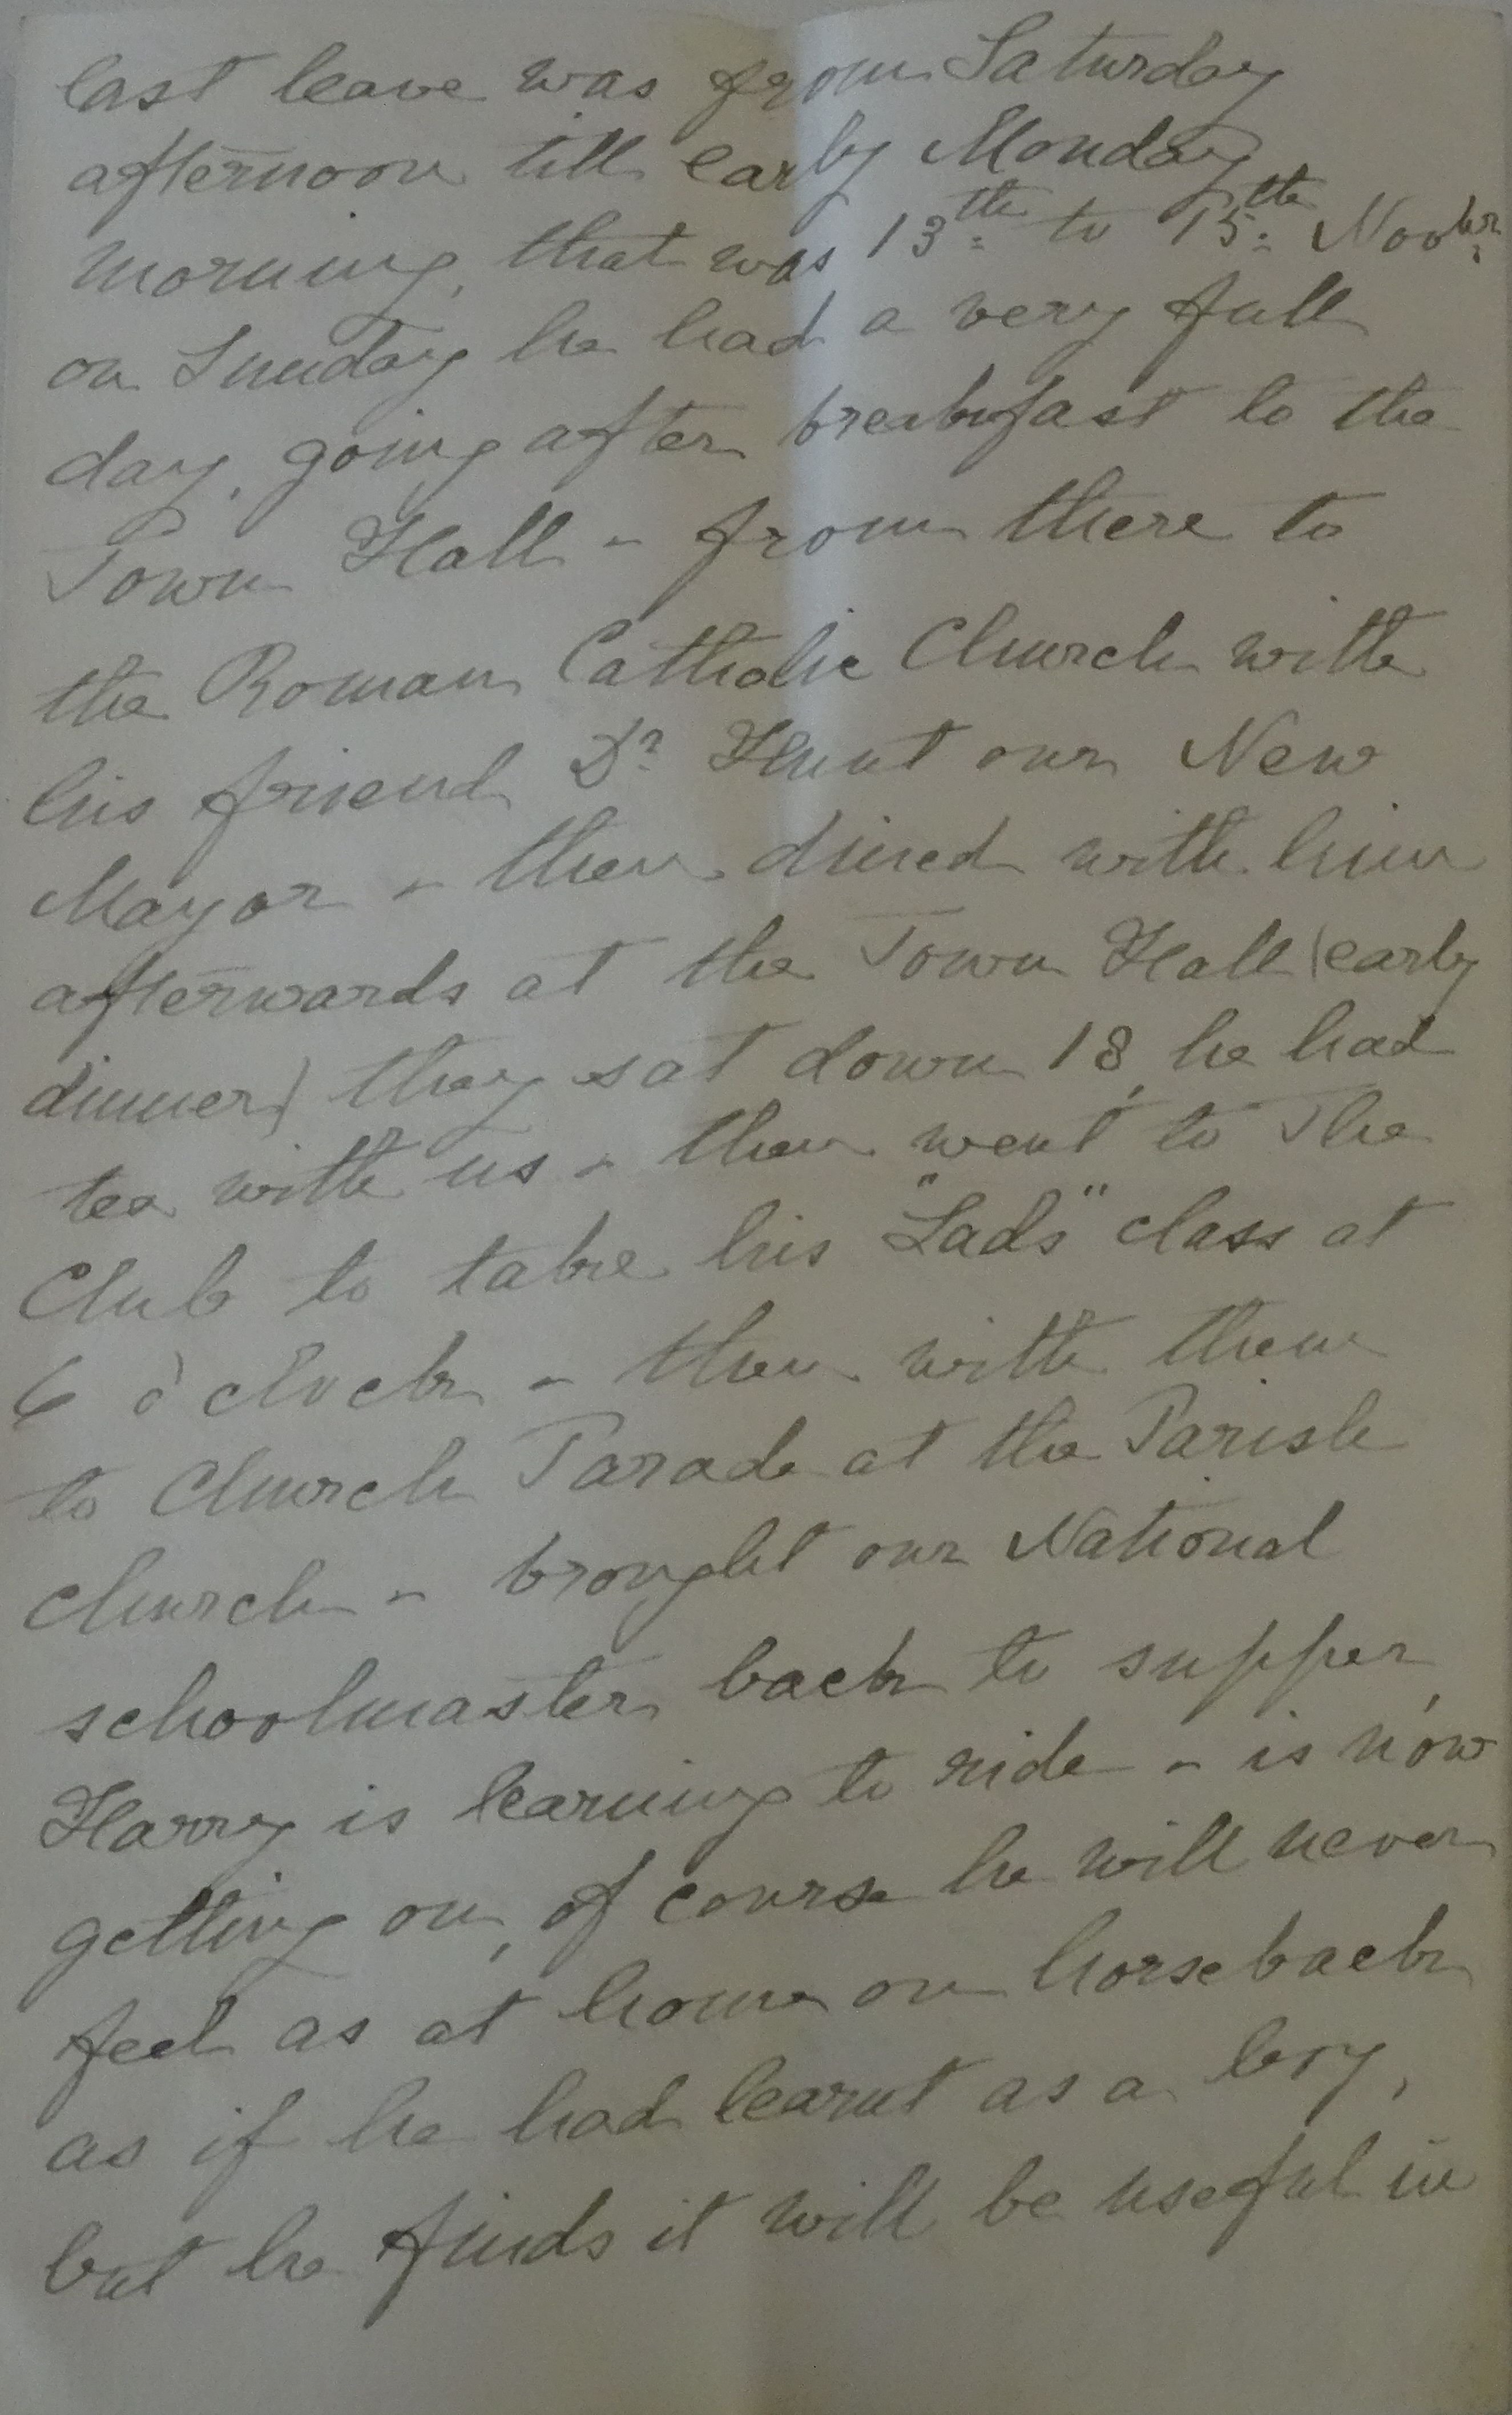 last leave was from Saturday
afternoon till early Monday
morning, that was 13th to 15th Novbr.
on Sunday he had a very full
day, going after breakfast to the
Town Hall - from there to
the Roman Catholic Church with
his friend Dr Hunt our New
Mayor - then dined with him
afterwards at the Town Hall (early
dinner) they sat down 18, he had
tea with us - then went to The
Club to take his "Lads" class at
6 o'clock - then with them
to Church Parade at the Parish
church - brought our National
schoolmaster back to supper,
Harry is learning to ride - is now
getting on, of course he will never
feel as at home on horseback
as if he had learnt as a boy,
but he finds it will be useful in